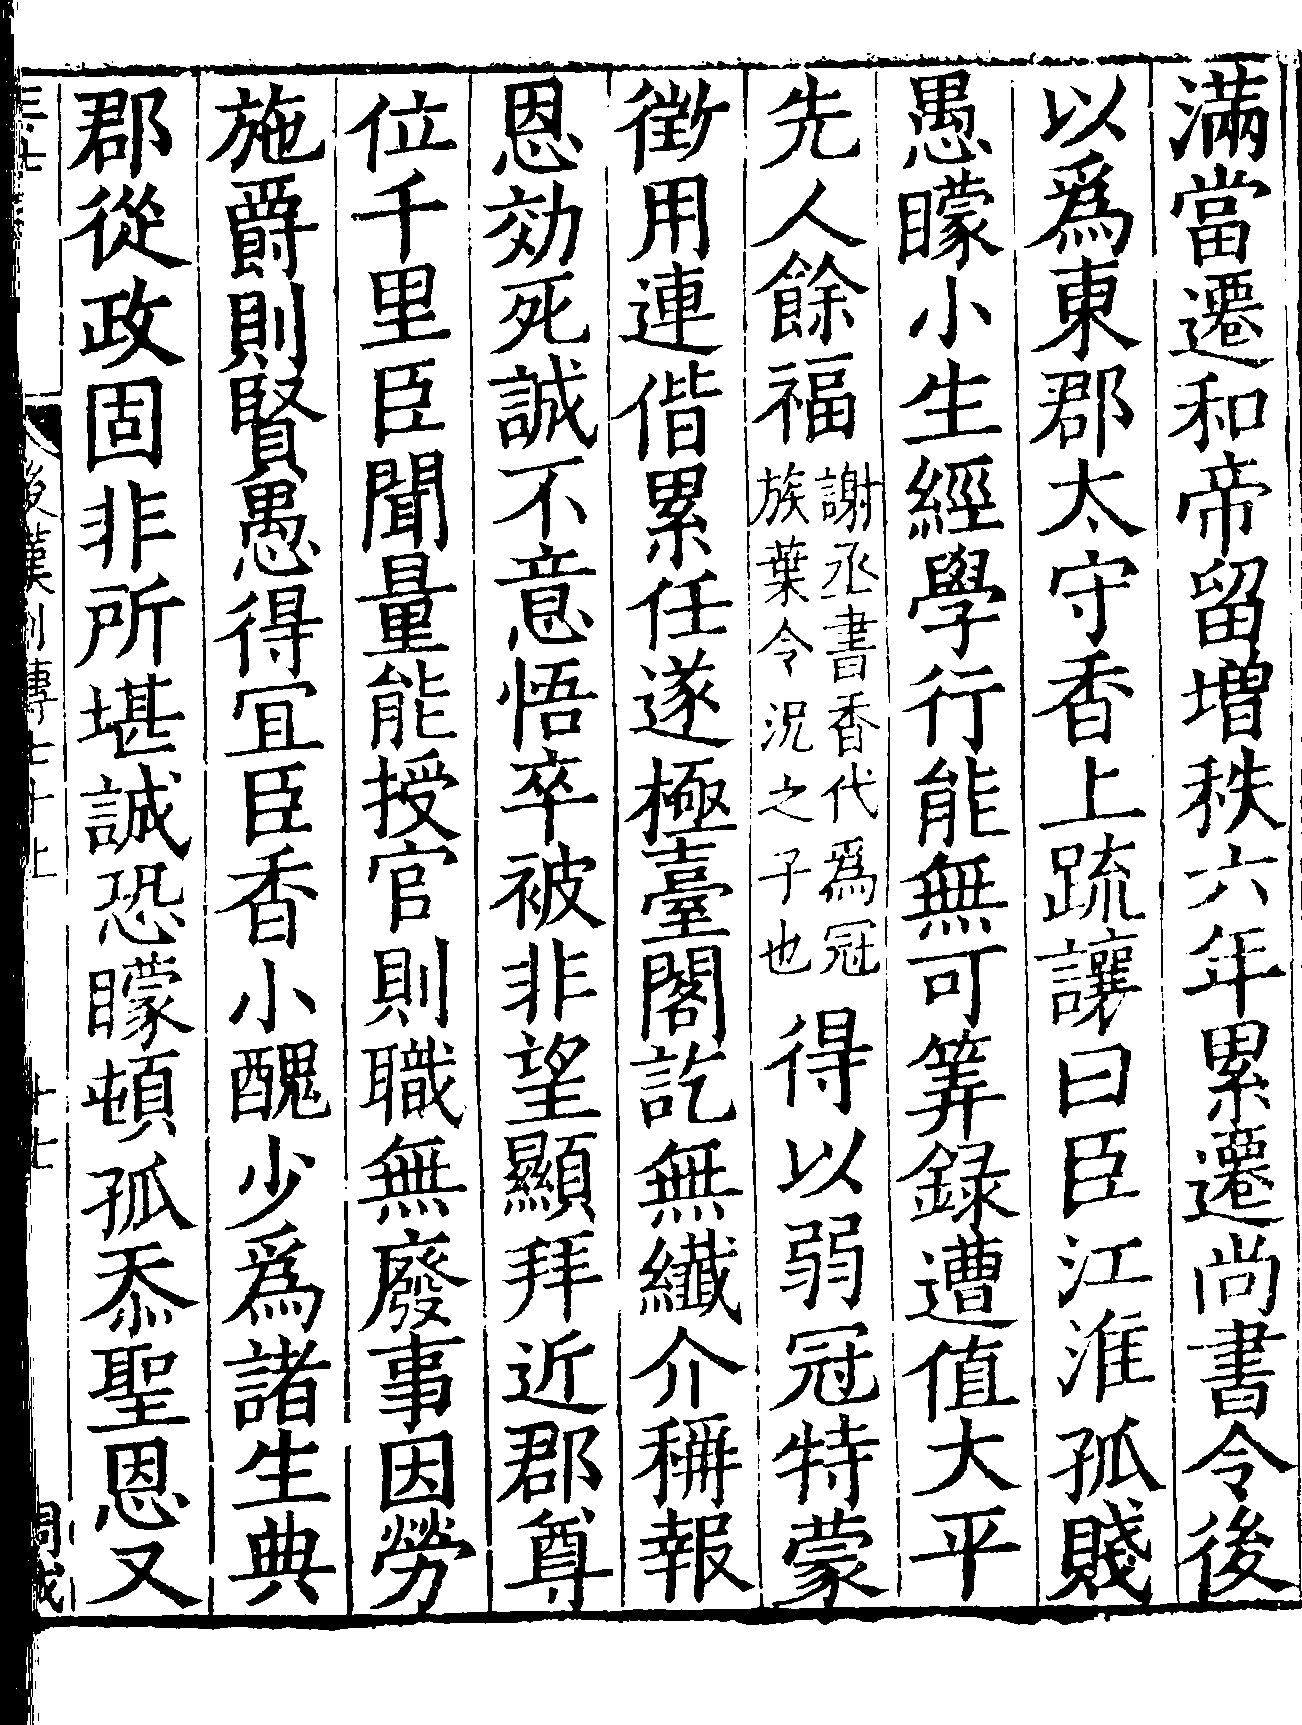 滿當遷和帝留增秩六年累遷尚書令後
以爲東郡太守香上疏讓曰臣江淮孤賤
愚矇小生經學行能無可筭録遭值大平
先人餘福
謝丞書香代爲冠
族葉令況之子也
得以弱冠特蒙
徵用連偕累任遂極臺閣訖無纎介稱報
恩効死誠不意悟卒被非望顯拜近郡尊
位千里臣聞量能授官則職無廢事因勞
施爵則賢愚得宜臣香小醜少爲諸生典
郡從政固非所堪誠恐矇頓孤忝聖恩又
後漢列傳七十上
十七